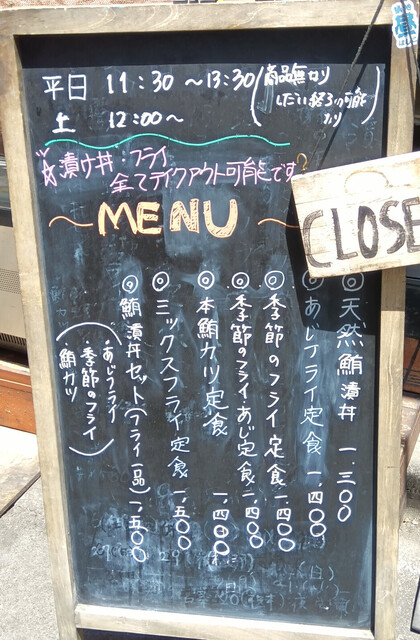 平日 11:30 ～13:30 (商品無くなり
しだい終了の可能
あり
土 12:00～
☆漬け丼・フライ
全てテイクアウト可能です
～MENU～
CLOSE
◎天然鮪漬丼 一、三〇〇
◎あじフライ定食 一、四〇〇
◎季節のフライ定食 一、四〇〇
◎季節のフライ・あじ定食 一、四〇〇
◎本鮪カツ定食 一、四〇〇
◎ミックスフライ定食 一、五〇〇
◎鮪漬丼セット(フライ一品) 一、五〇〇
(・あじフライ
・季節のフライ
・鮪カツ)